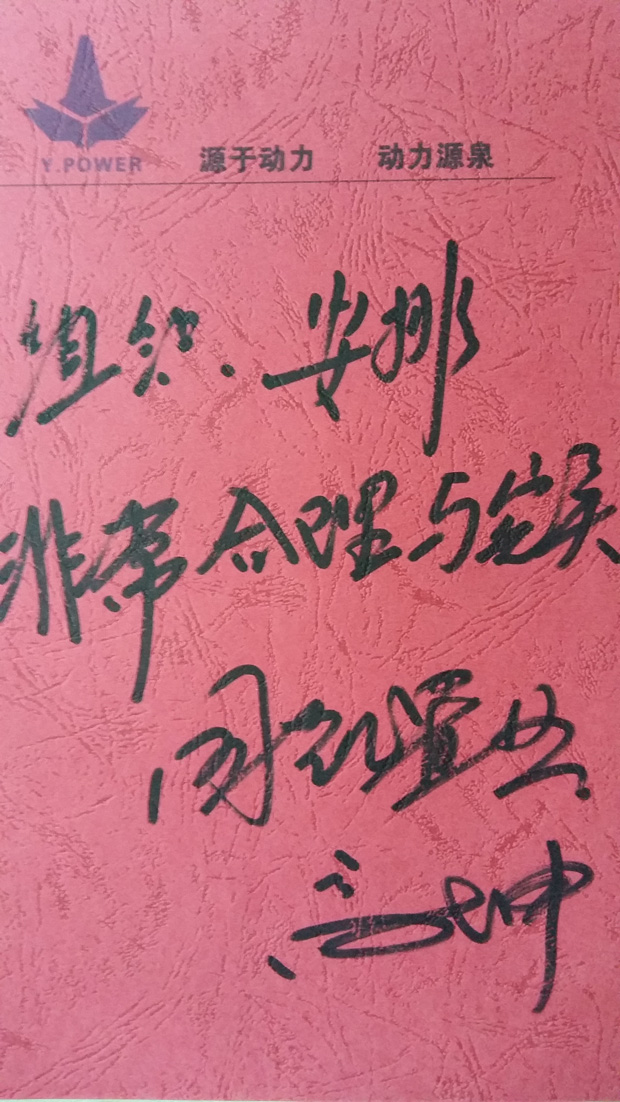 Y.POWER 源于动力 动力源泉
组织、安排
非常合理与完美
置业